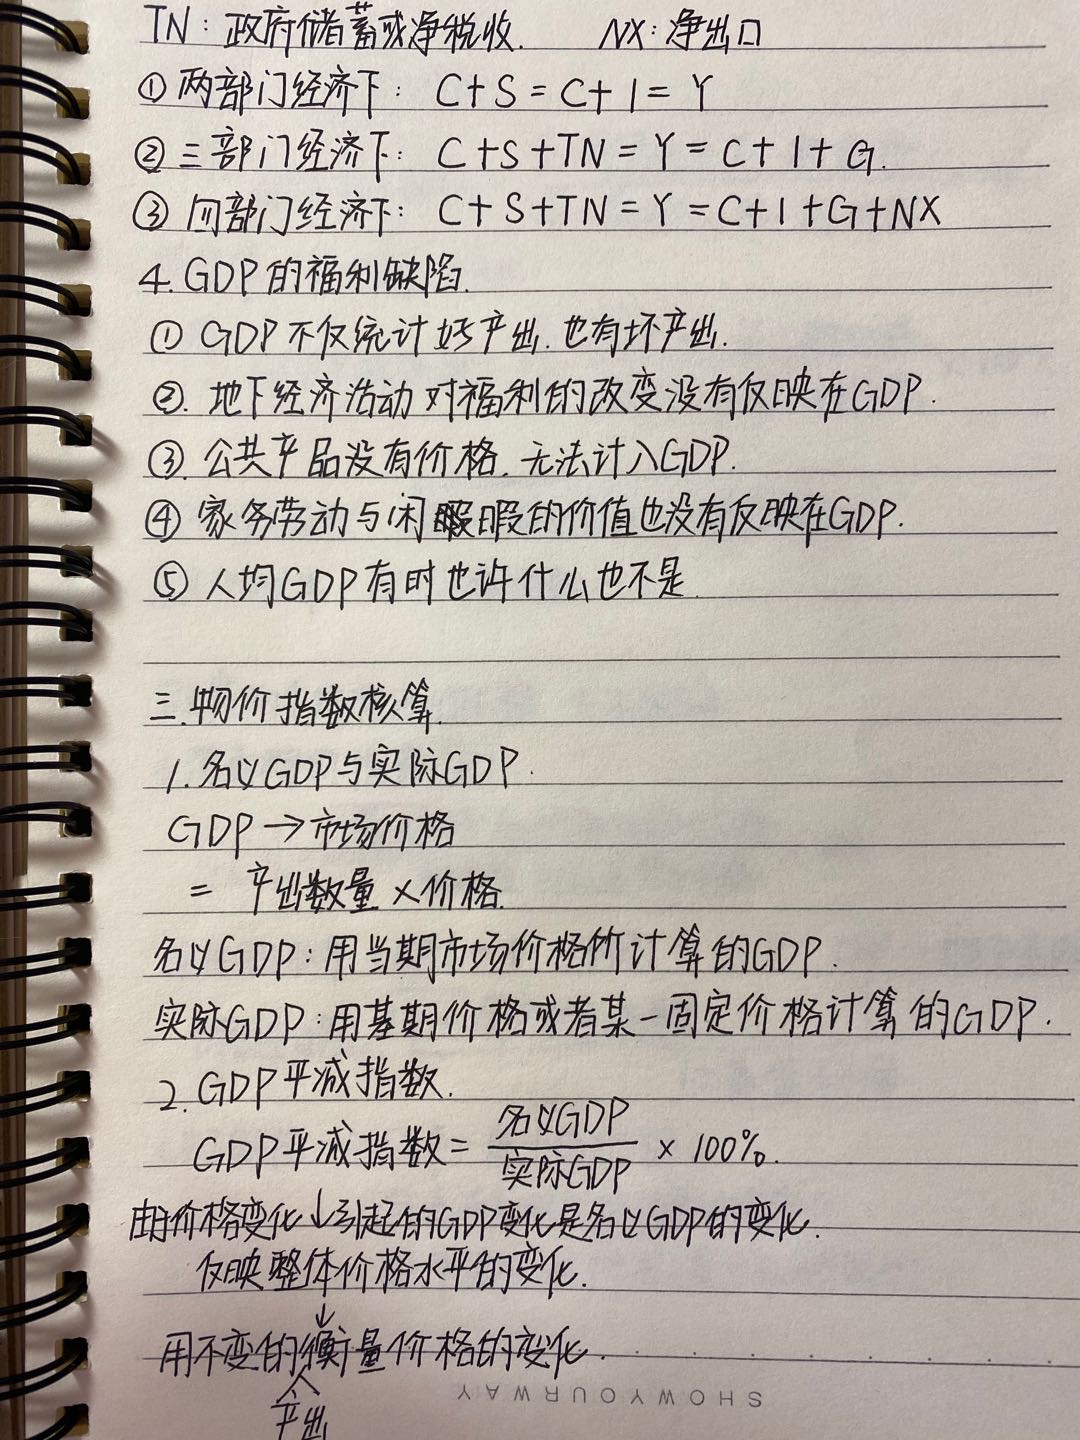 TN：政府储蓄或净税收.  NX：净出口
① 两部门经济下：C+S=C+I=Y
② 三部门经济下：C+S+TN=Y=C+I+G.
③ 四部门经济下：C+S+TN=Y=C+I+G+NX
4. GDP的福利缺陷.
① GDP不仅统计好产出.也有坏产出.
②. 地下经济活动对福利的改变没有反映在GDP.
③ 公共产品没有价格.无法计入GDP.
④ 家务劳动与闲暇的价值也没有反映在GDP.
⑤ 人均GDP有时也许什么也不是.
三.物价指数核算.
1.名义GDP与实际GDP.
GDP→市场价格
= 产出数量×价格.
名义GDP：用当期市场价格所计算的GDP.
实际GDP：用基期价格或者某一固定价格计算的GDP.
2. GDP平减指数.
GDP平减指数=名义GDP/实际GDP × 100%.
由价格变化↓引起的GDP变化是名义GDP的变化.
反映整体价格水平的变化.
↓
用不变的产出衡量价格的变化.
SHOWYOURWAY